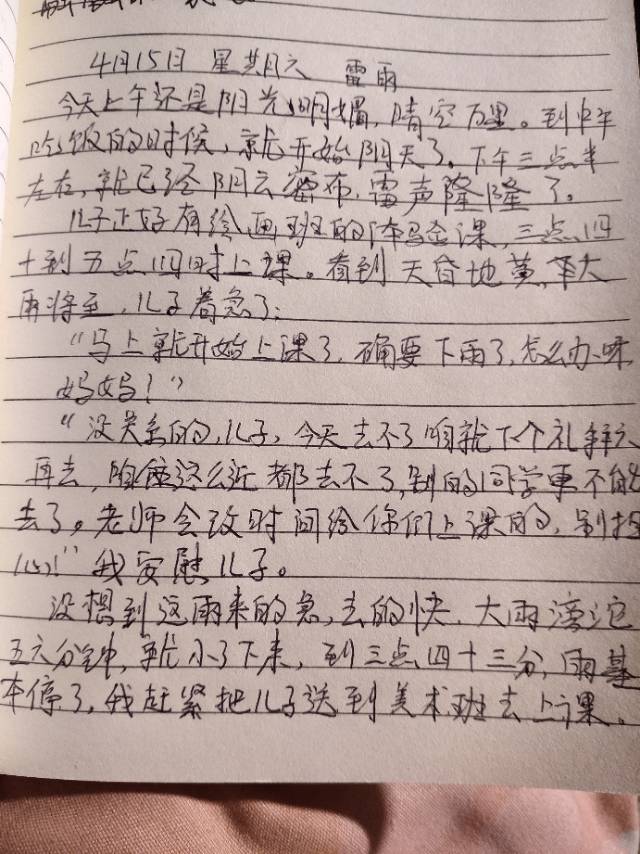 4月15日 星期六 雷雨
今天上午还是阳光明媚，晴空万里。到中午
吃饭的时候，就开始阴天了。下午三点半
左右，就已经阴云密布，雷声隆隆了。
儿子正好有绘画班的体验课，三点四
十到五点四十上课。看到天昏地黄，大
雨将至，儿子着急了：
“马上就开始上课了，确要下雨了，怎么办呀
妈妈！”
“没关系的，儿子，今天去不了咱就下个礼拜六
再去，咱住这么近都去不了，别的同学更不能
去了。老师会改时间给你们上课的，别担
心！”我安慰儿子。
没想到这雨来的急，去的快，大雨滂沱
五六分钟，就小了下来，到三点四十三分，雨基
本停了，我赶紧把儿子送到美术班去上课。